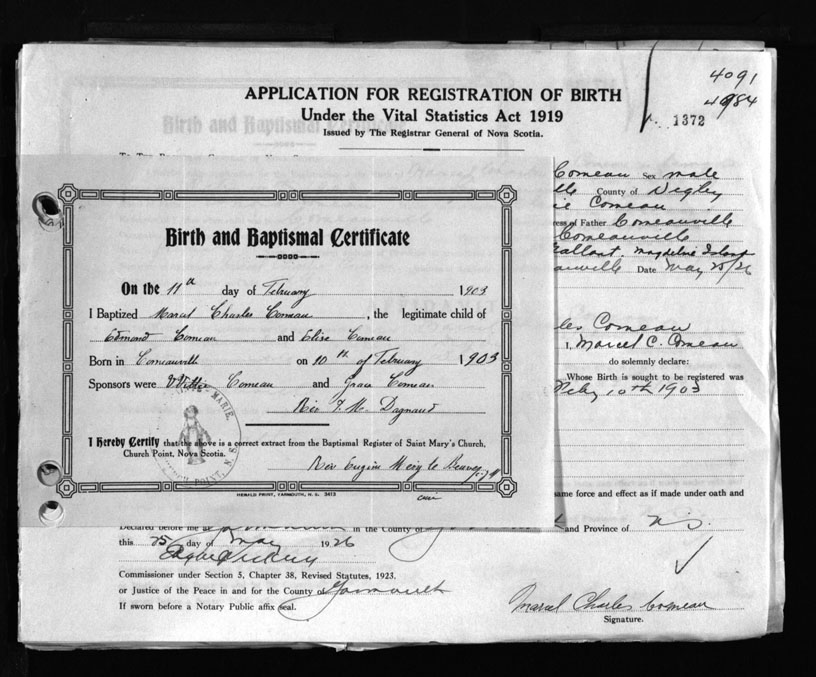 4091
4984
1372
APPLICATION FOR REGISTRATION OF BIRTH
Under the Vital Statistics Act 1919
Issued by The Registrar General of Nova Scotia.
Comeau Sex male
County of Digby
Comeau
of Father Comeauville
Comeauville
Magdeline Island
Date May 25/26
Comeau
I, Marcel C. Comeau
do solemnly declare:
Whose Birth is sought to be registered was
Feby 10th 1903
same force and effect as if made under oath and
and Province of N.S.
Birth and Baptismal Certificate
On the 11th day of February 1903
I Baptized Marcel Charles Comeau, the legitimate child of
Edmond Comeau and Elise Comeau
Born in Comeauville on 10th of February 1903
Sponsors were Comeau and Grace Comeau
Rev Dagnaud
I Hereby Certify that the above is a correct extract from the Baptismal Register of Saint Mary's Church,
Church Point, Nova Scotia.
Rev Eugene
HERALD PRINT, YARMOUTH, N. S. 3413
MARIE,
POINT, N. S.
Declared before me at in the County of
this 25 day of May 1926
Commissioner under Section 5, Chapter 38, Revised Statutes, 1923,
or Justice of the Peace in and for the County of Yarmouth
If sworn before a Notary Public affix seal.
Marcel Charles Comeau
Signature.